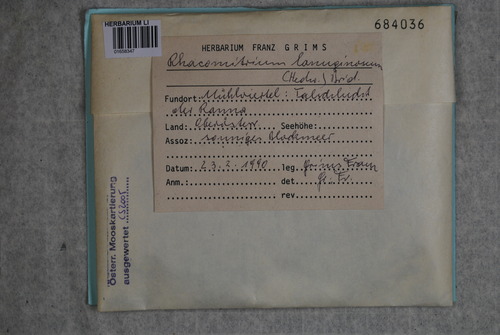 HERBARIUM LI
684036
HERBARIUM FRANZ GRIMS
Rhacomitrium lanuginosum
(Hedw.) Brid.
Fundort: Mühlviertel: Talschlucht
der Ranna
Land: Oberösterr. Seehöhe:
Assoz: sonniges Blockmeer
Datum: 23.2.1990 leg. Grims Franz
Anm.: det. Gr. Fr.
rev.
Österr. Mooskartierung
ausgewertet